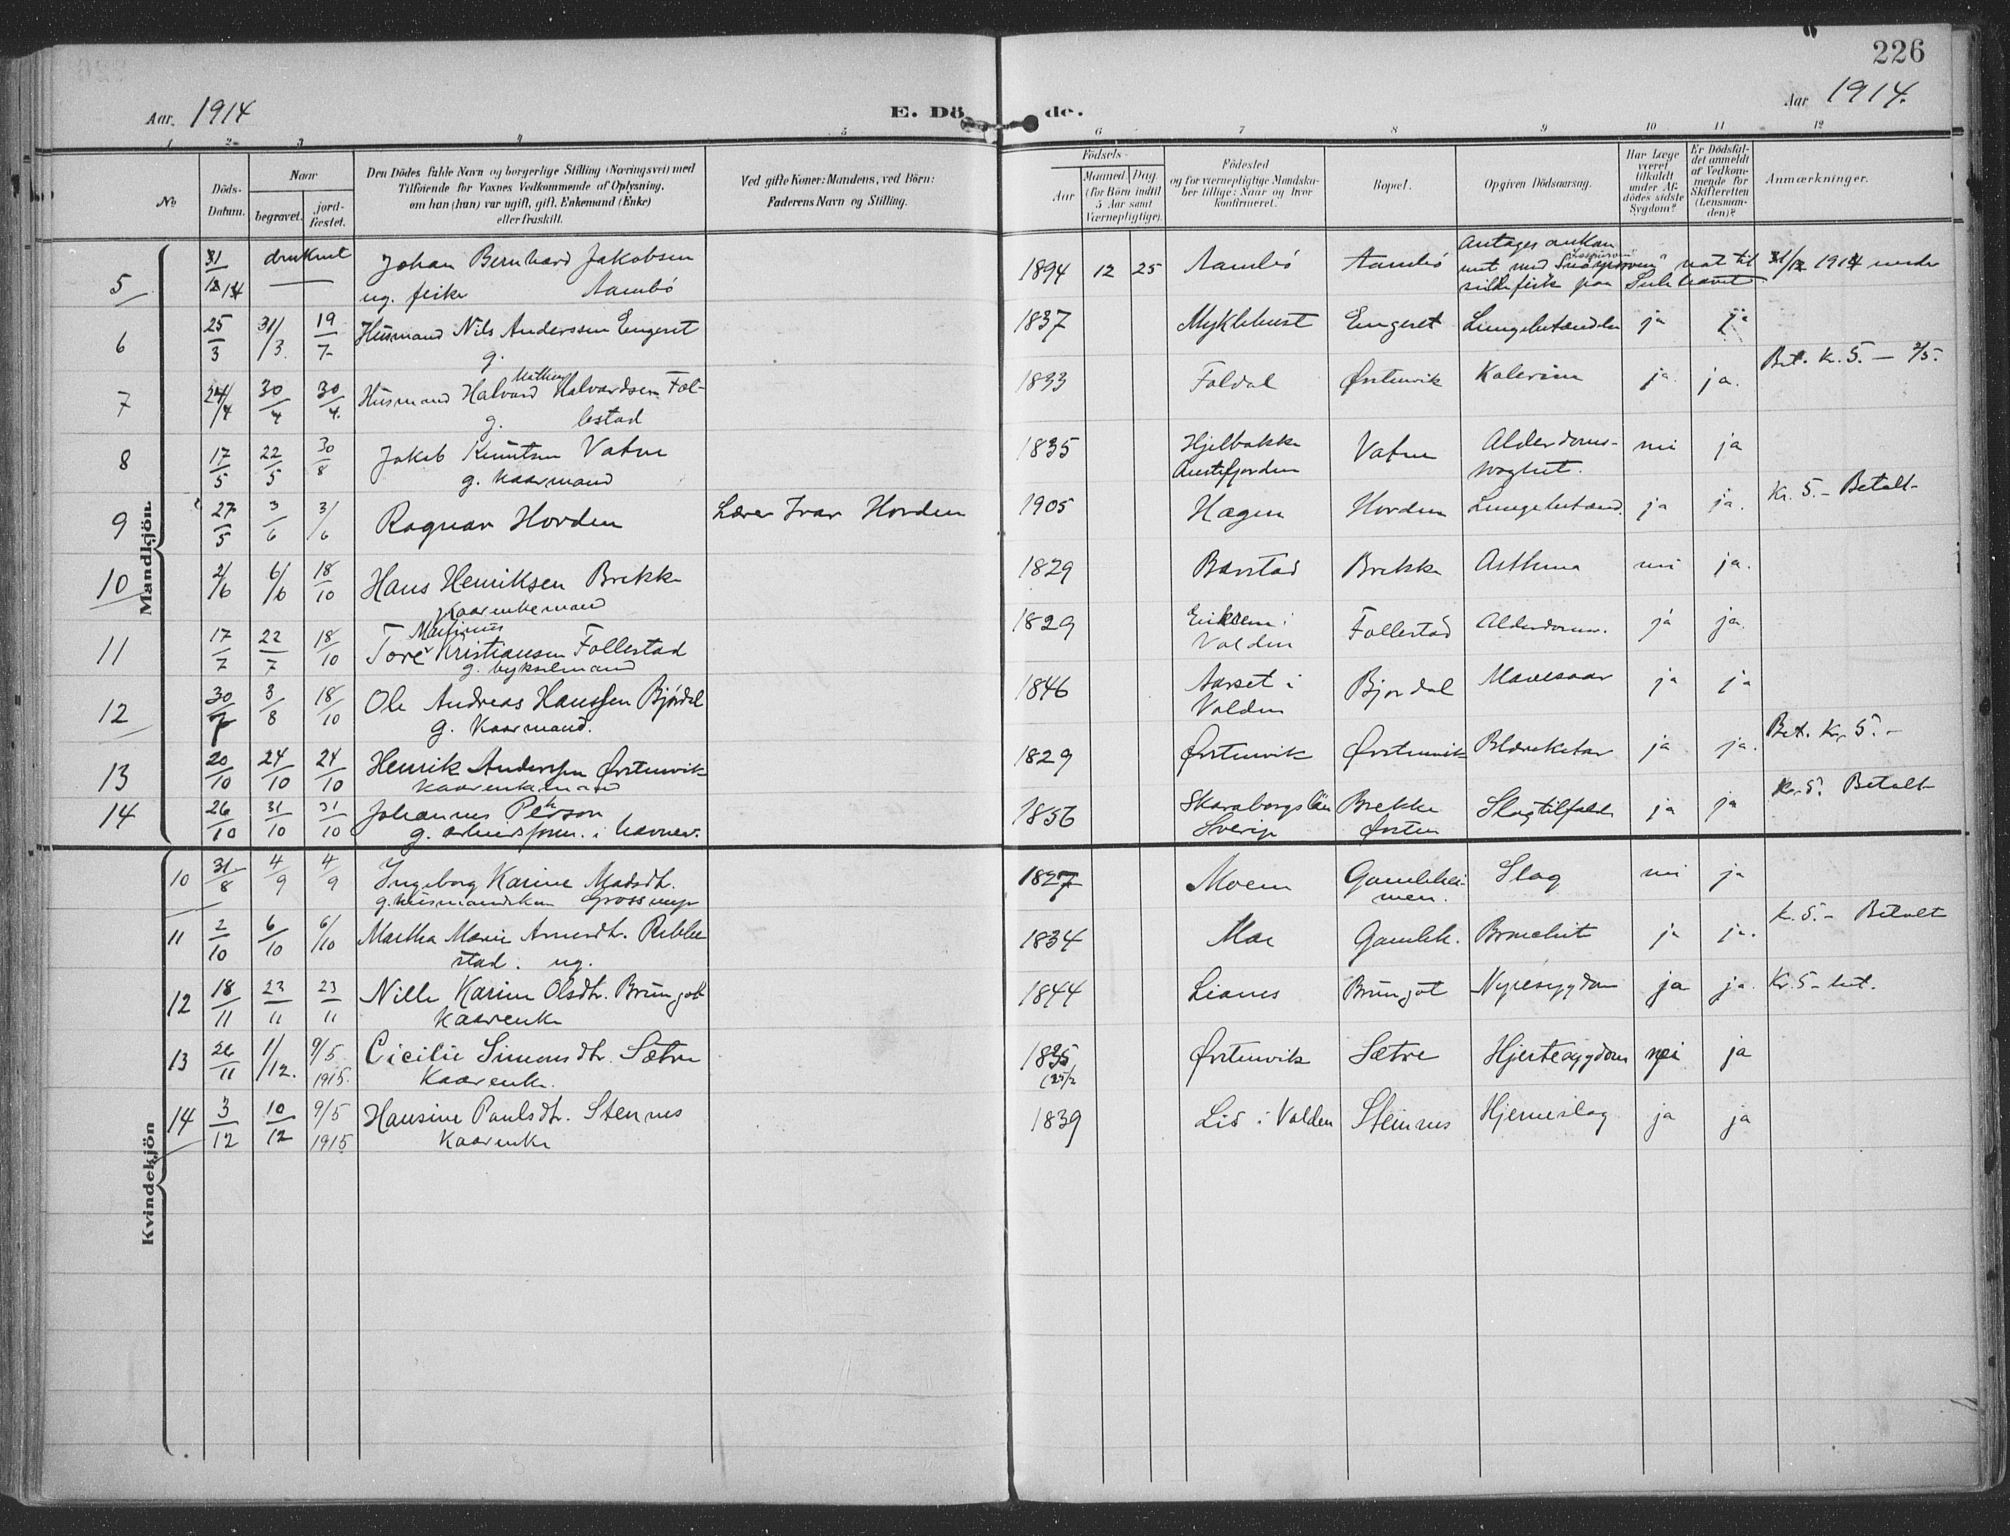 226
Aar. 1914
E. Dö de.
Aar 1914.
1 2 3 4 5 6 7 8 9 10 11 12
No
Döds-Datum.
Naar
begravet.
jord-fæstet.
Den Dödes fulde Navn og borgerlige Stilling (Næringsvei) med
Tilføiende for Voxnes Vedkommende af Oplysning,
om han (hun) var ugift, gift, Enkemand (Enke)
eller fraskilt.
Ved gifte Koner: Mandens, ved Börn:
Faderens Navn og Stilling.
Födsels-
Aar
Maaned Dag
(for Börn indtil
5 Aar samt
Værnepligtige).
Födested
og for værnepligtige Mandska-
ber tillige: Naar og hvor
konfirmeret.
Bopæl.
Opgiven Dödsaarsag.
Har Læge
været
tilkaldt
under Af-
dödes sidste
Sygdom?
Er Dödsfal-
det anmeldt
af Vedkom-
mende for
Skifteretten
(Lensman-
den)?
Anmærkninger.
Mandkjön.
5 31/12 14 druknet Johan Bernhard Jakobsen 1894 12 25 Aambö Aambö Antages omkom
ug. fisker Aambö
met med nat til 31/12 1914 under
sildefiske paa
6 25/3 31/3 19/7 Husmand Nils Anderssen Engeset 1837 Myklebust Engeset Lungebetændelse ja ja
g.
7 24/4 30/4 30/4. Husmand Halvard Halvardsen Fol- 1833 Foldal Ørstenvik ja ja. Bet. K. 5. — 2/5.
g. lestad
8 17/5 22/5 30/8 Jakob Knutsen Vatne 1835 Hjelbakke Vatne Alderdoms- nei ja
g. kaarmand Austefjorden svaghet.
9 27/5 3/6 3/6 Ragnar Hovden Lærer Ivar Hovden 1905 Hagen Hovden Lungebetænd. ja ja. Kr. 5.- Betalt
10 2/6 6/6 18/10 Hans Henriksen Brekke 1829 Barstad Brekke Asthma nei ja.
Kaarenkemand
11 17/7 22/7 18/10 Tore Martinus Kristiansen Follestad 1829 i Follestad ja ja.
g. bykselmand Volden
12 30/7 3/8 18/10 Ole Andreas Hanssen Bjørdal 1846 Aarset i Bjordal Mavesaar ja ja
g. Kaarmand. Volden
13 20/10 24/10 24/10 Henrik Anderssen Ørstenvik 1829 Ørstenvik Ørstenvik ja ja. Bet. Kr. 5.-
Kaarenkemand
14 26/10 31/10 31/10 Johannes Person 1856 Skaraborgslän Brekke Slagtilfælde ja ja Kr. 5. Betalt
g. arbeidsform. i havnev. Sverige Ørsten
Kvindekjön
10 31/8 4/9 4/9 Ingeborg Karine Madsdtr. 1827 Moem Slag nei ja
g. husmandskon
11 2/10 6/10 6/10 Martha Marie Arnesdtr. Ribbe- 1834 Moe ja ja. K. 5.- Betalt
stad. ug.
12 18/11 23/11 23/11 Nille Karine Olsdtr. Brungot 1844 Lianes Brungot Nyresygdom ja ja. Kr. 5- bet.
Kaarenke
13 26/11 1/12. 9/5 1915. Cicilie Simonsdtr. Sætre Ørstenvik Sætre Hjertesygdom nei ja
Kaarenke.
14 3/12 10/12 9/5 1915 Hansine Paulsdtr. Stennes 1839 Lid i Volden Steinnes Hjerneslag ja ja
Kaarenke